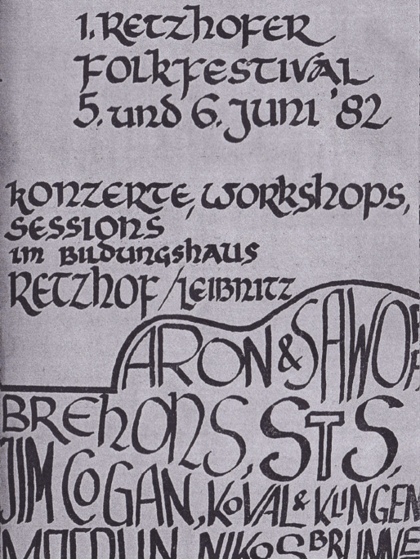 1. RETZHOFER
FOLKFESTIVAL
5. und 6. JUNI '82
KONZERTE, WORKSHOPS,
SESSIONS
IM BILDUNGSHAUS
RETZHOF/LEIBNITZ
ARON &
BREHONS, STS,
JIM COGAN, KOVAL & KLINGEN
NIKOS